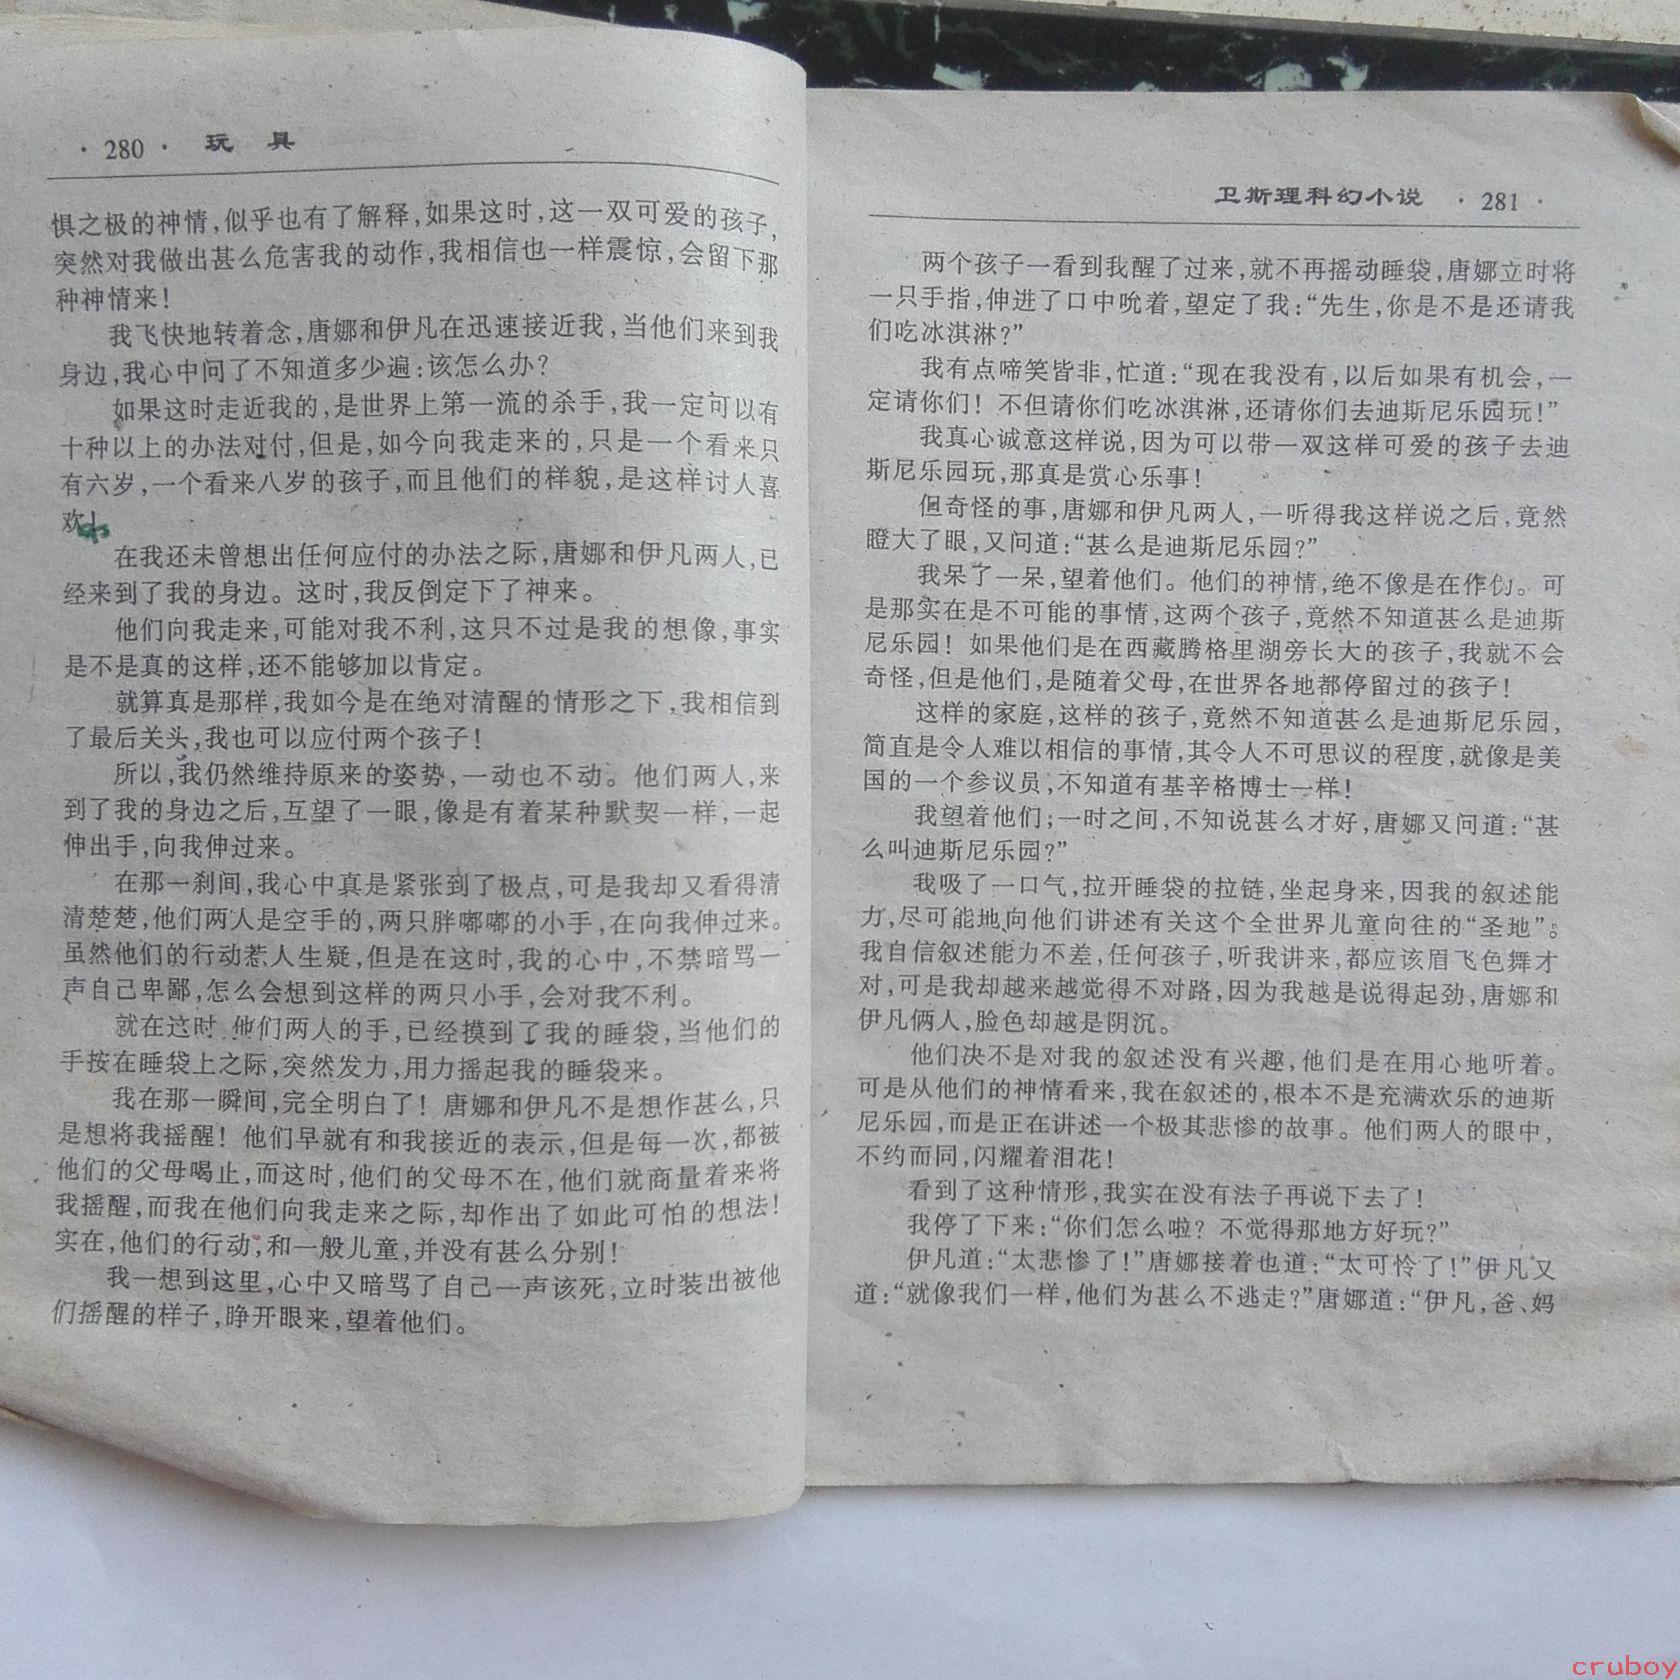 · 280 · 玩 具
惧之极的神情,似乎也有了解释,如果这时,这一双可爱的孩子,
突然对我做出甚么危害我的动作,我相信也一样震惊,会留下那
种神情来!
我飞快地转着念,唐娜和伊凡在迅速接近我,当他们来到我
身边,我心中问了不知道多少遍:该怎么办?
如果这时走近我的,是世界上第一流的杀手,我一定可以有
十种以上的办法对付,但是,如今向我走来的,只是一个看来只
有六岁,一个看来八岁的孩子,而且他们的样貌,是这样讨人喜
欢!
在我还未曾想出任何应付的办法之际,唐娜和伊凡两人,已
经来到了我的身边。这时,我反倒定下了神来。
他们向我走来,可能对我不利,这只不过是我的想像,事实
是不是真的这样,还不能够加以肯定。
就算真是那样,我如今是在绝对清醒的情形之下,我相信到
了最后关头,我也可以应付两个孩子!
所以,我仍然维持原来的姿势,一动也不动。他们两人,来
到了我的身边之后,互望了一眼,像是有着某种默契一样,一起
伸出手,向我伸过来。
在那一刹间,我心中真是紧张到了极点,可是我却又看得清
清楚楚,他们两人是空手的,两只胖嘟嘟的小手,在向我伸过来。
虽然他们的行动惹人生疑,但是在这时,我的心中,不禁暗骂一
声自己卑鄙,怎么会想到这样的两只小手,会对我不利。
就在这时,他们两人的手,已经摸到了我的睡袋,当他们的
手按在睡袋上之际,突然发力,用力摇起我的睡袋来。
我在那一瞬间,完全明白了!唐娜和伊凡不是想作甚么,只
是想将我摇醒!他们早就有和我接近的表示,但是每一次,都被
他们的父母喝止,而这时,他们的父母不在,他们就商量着来将
我摇醒,而我在他们向我走来之际,却作出了如此可怕的想法!
实在,他们的行动,和一般儿童,并没有甚么分别!
我一想到这里,心中又暗骂了自己一声该死,立时装出被他
们摇醒的样子,睁开眼来,望着他们。
卫斯理科幻小说 · 281 ·
两个孩子一看到我醒了过来,就不再摇动睡袋,唐娜立时将
一只手指,伸进了口中吮着,望定了我:“先生,你是不是还请我
们吃冰淇淋?”
我有点啼笑皆非,忙道:“现在我没有,以后如果有机会,一
定请你们!不但请你们吃冰淇淋,还请你们去迪斯尼乐园玩!”
我真心诚意这样说,因为可以带一双这样可爱的孩子去迪
斯尼乐园玩,那真是赏心乐事!
但奇怪的事,唐娜和伊凡两人,一听得我这样说之后,竟然
瞪大了眼,又问道:“甚么是迪斯尼乐园?”
我呆了一呆,望着他们。他们的神情,绝不像是在作伪。可
是那实在是不可能的事情,这两个孩子,竟然不知道甚么是迪斯
尼乐园!如果他们是在西藏腾格里湖旁长大的孩子,我就不会
奇怪,但是他们,是随着父母,在世界各地都停留过的孩子!
这样的家庭,这样的孩子,竟然不知道甚么是迪斯尼乐园,
简直是令人难以相信的事情,其令人不可思议的程度,就像是美
国的一个参议员,不知道有基辛格博士一样!
我望着他们;一时之间,不知说甚么才好,唐娜又问道:“甚
么叫迪斯尼乐园?”
我吸了一口气,拉开睡袋的拉链,坐起身来,因我的叙述能
力,尽可能地向他们讲述有关这个全世界儿童向往的“圣地”。
我自信叙述能力不差,任何孩子,听我讲来,都应该眉飞色舞才
对,可是我却越来越觉得不对路,因为我越是说得起劲,唐娜和
伊凡俩人,脸色却越是阴沉。
他们决不是对我的叙述没有兴趣,他们是在用心地听着。
可是从他们的神情看来,我在叙述的,根本不是充满欢乐的迪斯
尼乐园,而是正在讲述一个极其悲惨的故事。他们两人的眼中,
不约而同,闪耀着泪花!
看到了这种情形,我实在没有法子再说下去了!
我停了下来:“你们怎么啦?不觉得那地方好玩?”
伊凡道:“太悲惨了!”唐娜接着也道:“太可怜了!”伊凡又
道:“就像我们一样,他们为甚么不逃走?”唐娜道:“伊凡,爸、妈
cruboy